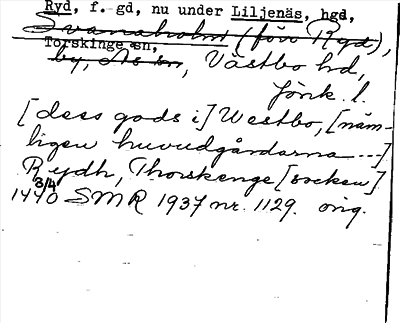 Ryd, f. gd, nu under Liljenäs, hgd,
Svanaholm (förr Ryd),
Torskinge sn,
by, Ås sn, Västbo hd,
Jönk. l.
[dess gods i] Westbo, [näm-
ligen huvudgårdarna ---]
Rydh, Thorskenge [socken]
1440 3/4 SMR 1937 nr. 1129. orig.